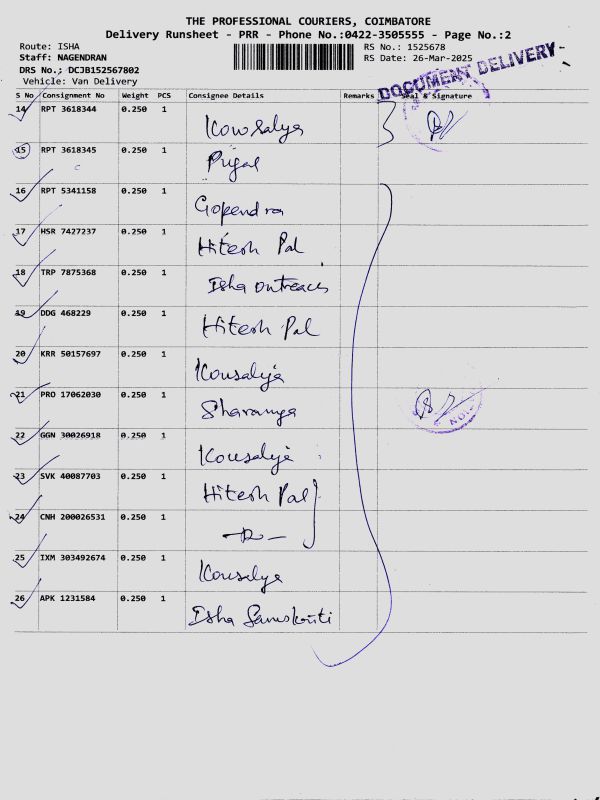 THE PROFESSIONAL COURIERS, COIMBATORE
Delivery Runsheet - PRR - Phone No.:0422-3505555 - Page No.:2
Route: ISHA
RS No.: 1525678
Staff: NAGENDRAN
RS Date: 26-Mar-2025
DRS No.: DCJB152567802
Vehicle: Van Delivery
DOCUMENT DELIVERY
S No Consignment No Weight PCS Consignee Details Remarks Seal & Signature
14 RPT 3618344 0.250 1 Kowsalya
15 RPT 3618345 0.250 1
16 RPT 5341158 0.250 1 Gopendra
17 HSR 7427237 0.250 1 Hitesh Pal
18 TRP 7875368 0.250 1 Isha Outreach
19 DDG 468229 0.250 1 Hitesh Pal
20 KRR 50157697 0.250 1 Kousalya
21 PRO 17062030 0.250 1 Sharanya
22 GGN 30026918 0.250 1 Kousalya
23 SVK 40087703 0.250 1 Hitesh Pal
24 CNH 200026531 0.250 1
25 IXM 303492674 0.250 1 Kousalya
26 APK 1231584 0.250 1 Isha Samskriti